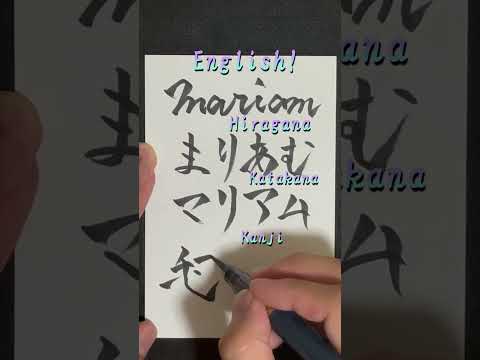 English!
Mariam
Hiragana
まりあむ
Katakana
マリアム
Kanji